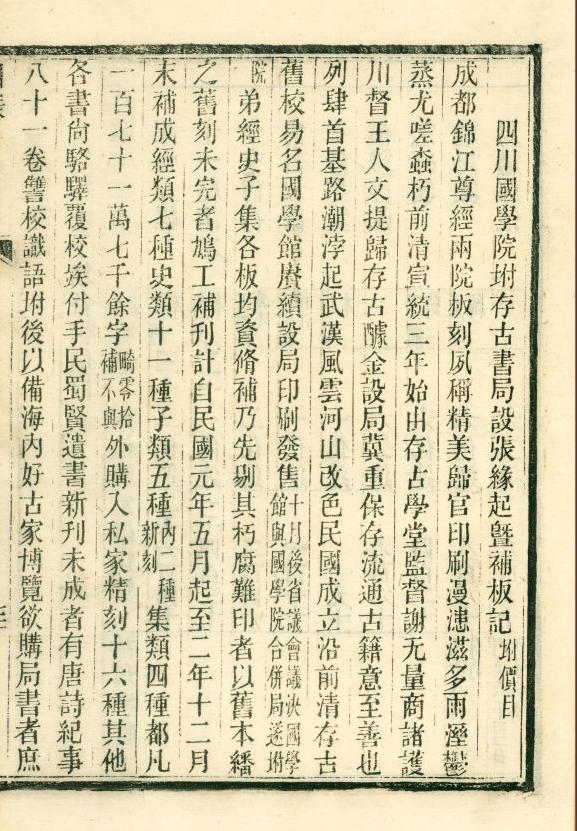 四川國學院坿存古書局設張緣起曁補板記坿價目
成都錦江尊經兩院板刻夙稱精美歸官印刷漫漶滋多雨溼鬱
蒸尤嗟蠧朽前清宣統三年始由存古學堂監督謝无量商諸護
川督王人文提歸存古醵金設局冀重保存流通古籍意至善也
列肆首基路潮浡起武漢風雲河山改色民國成立沿前清存古
舊校易名國學館賡續設局印刷發售十月後省議會議決國學館與國學院合併局遂坿
院弟經史子集各板均資脩補乃先剔其朽腐難印者以舊本繙
之舊刻未完者鳩工補刊計自民國元年五月起至二年十二月
末補成經類七種史類十一種子類五種內二種新刻集類四種都凡
一百七十一萬七千餘字畸零拾補不與外購入私家精刻十六種其他
各書尙駱驛覆校矦付手民蜀賢遺書新刊未成者有唐詩紀事
八十一卷讐校識語坿後以備海內好古家博覽欲購局書者庶